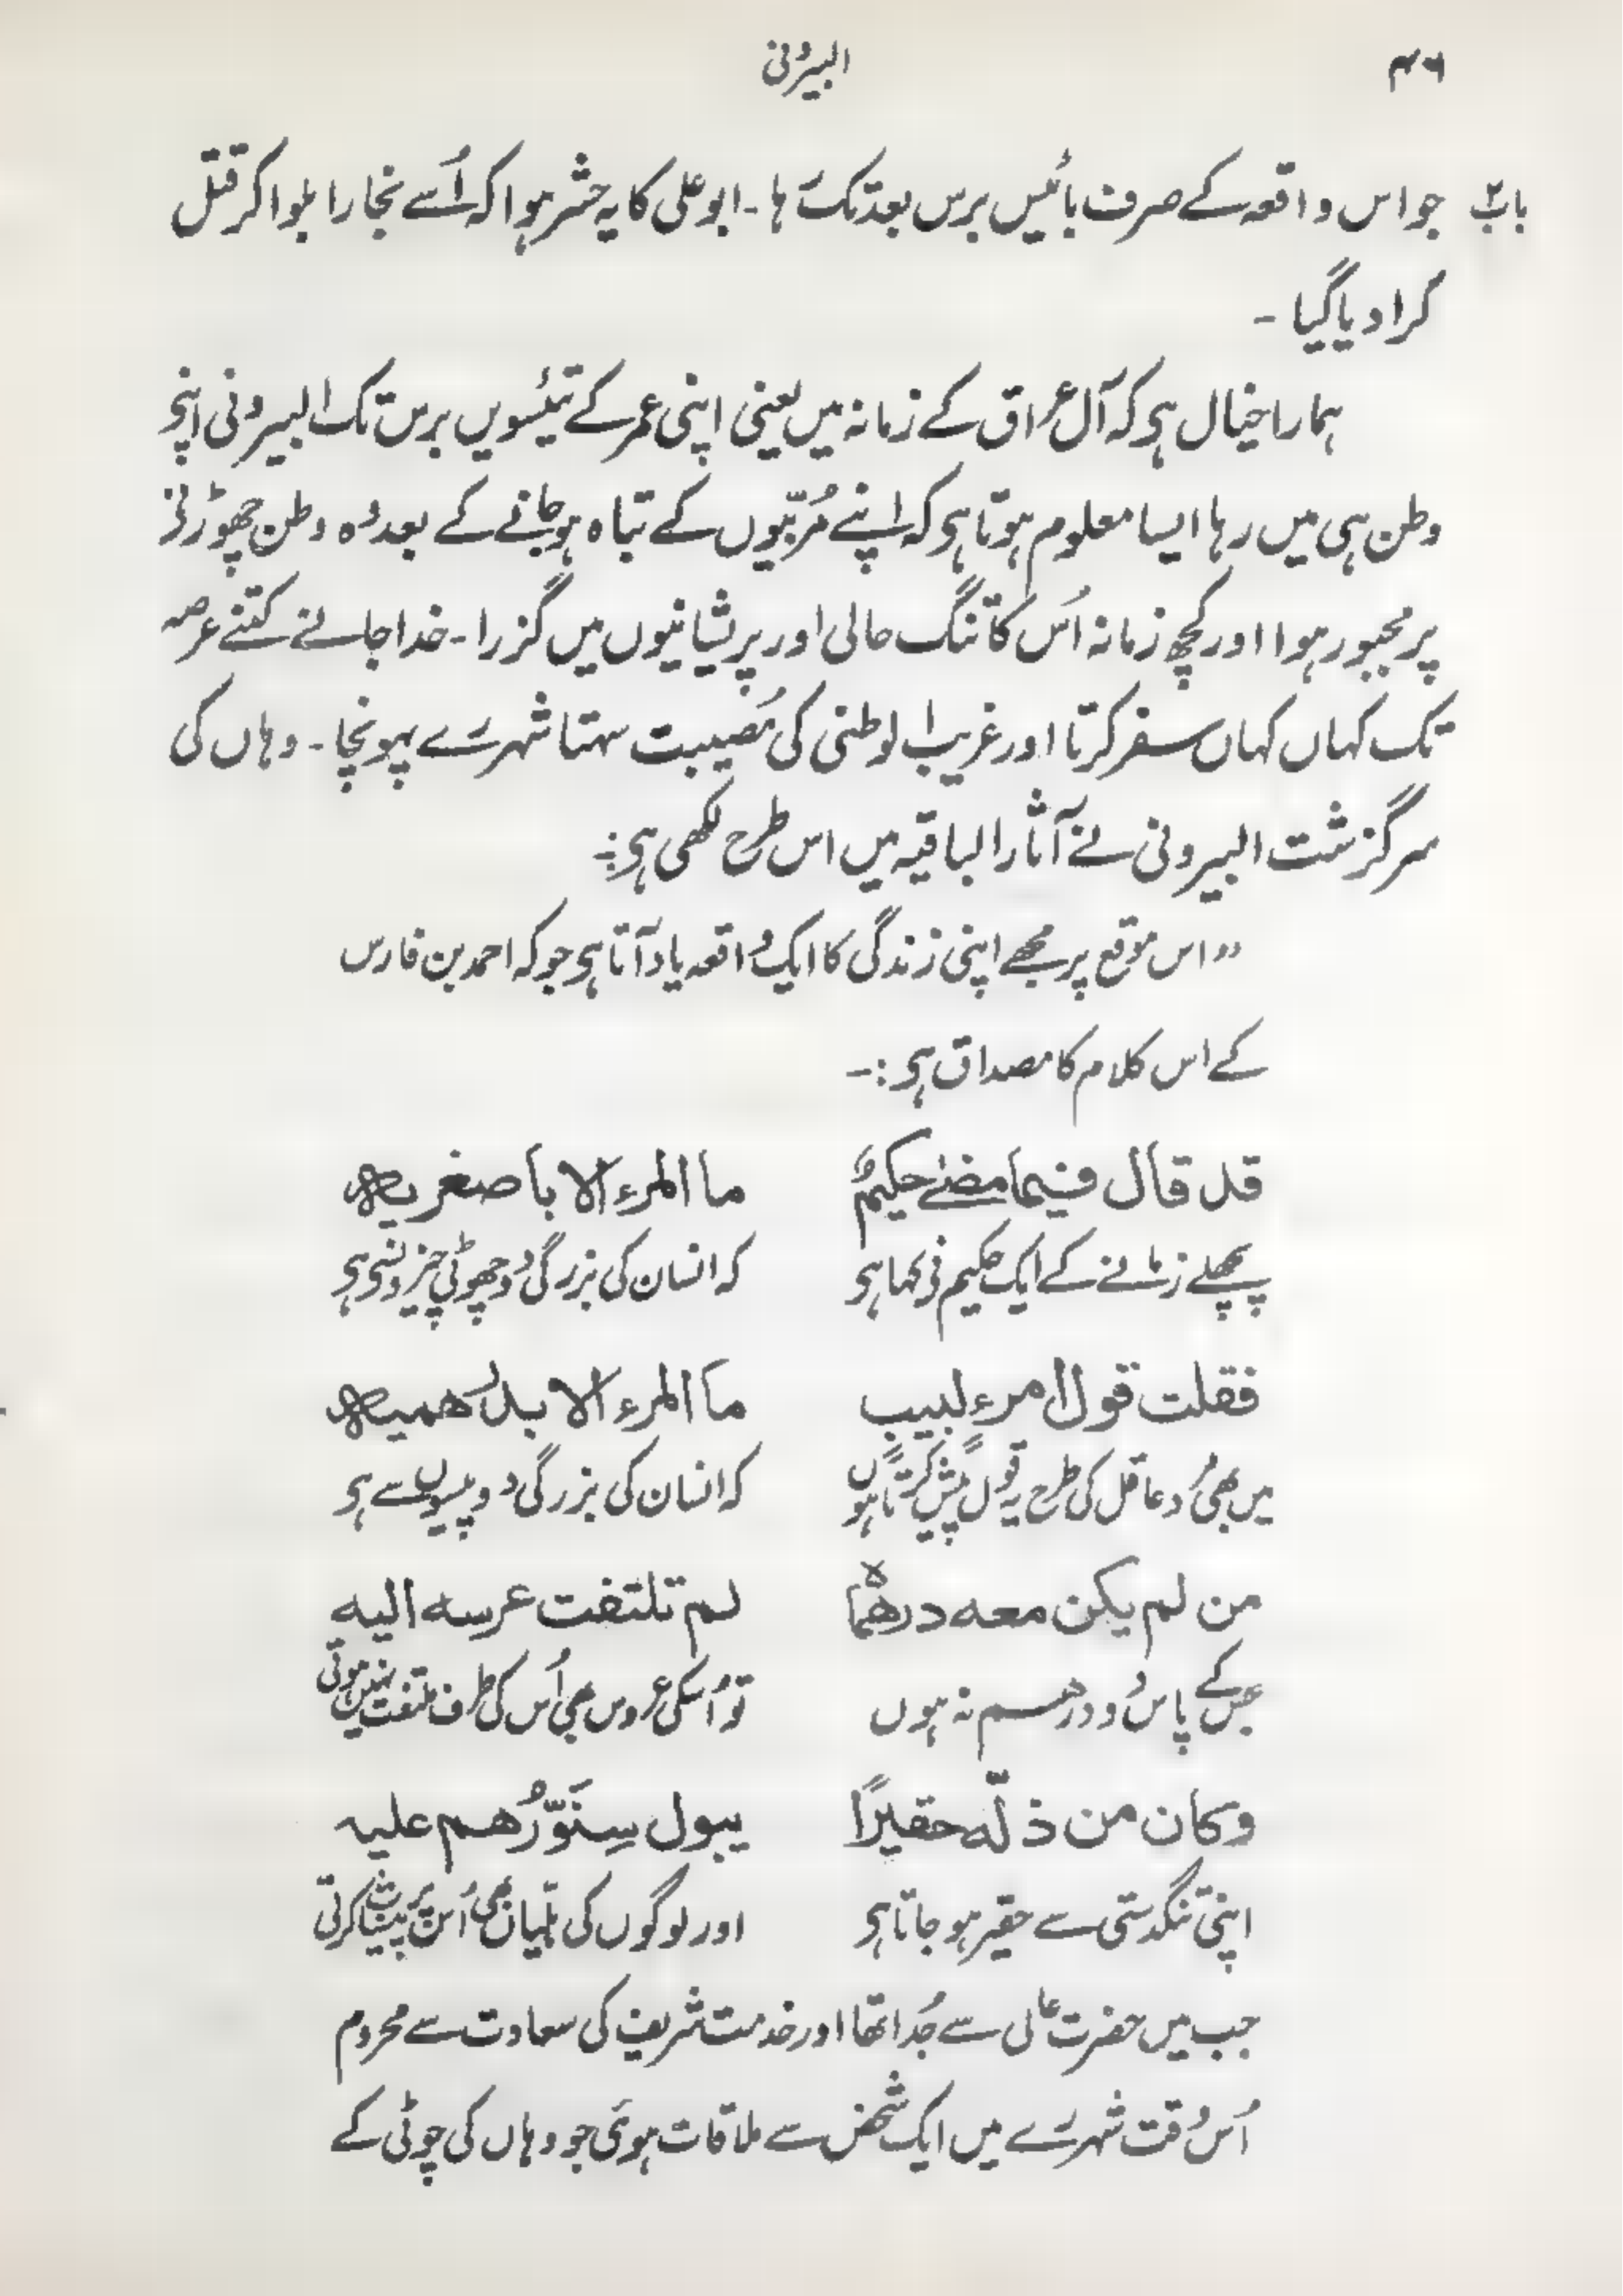 ۴۶
البیرونی
باب جو اس واقعہ کے صرف بائیس برس بعد تک رہا۔ ابو علی کا یہ حشر ہوا کہ اُسے بخارا بلوا کر قتل
کرا دیا گیا ۔
ہمارا خیال ہی کہ آل عراق کے زمانہ میں یعنی اپنی عمر کے تیئسویں برس تک البیرونی اپنی
وطن ہی میں رہا ایسا معلوم ہوتا ہی کہ اپنے مُربّیوں کے تباہ ہو جانے کے بعد وُہ وطن چھوڑنی
پر مجبور ہوا اور کچھ زمانہ اُس کا تنگ حالی اور پریشانیوں میں گزرا۔ خدا جانے کتنے عرصہ
تک کہاں کہاں سفر کرتا اور غریب الوطنی کی مُصیبت سہتا شہر رَے پہونچا۔ وہاں کی
سرگزشت البیرونی نے آثار الباقیہ میں اس طرح لکھی ہی:۔
”اس موقع پر مجھے اپنی زندگی کا ایک واقعہ یاد آتا ہی جو کہ احمد بن فارس
کے اس کلام کا مصداق ہی:۔
قد قال فیما مضیٰ حکیمٌ ما المرء الا باصغریہ
پچھلے زمانے کے ایک حکیم نی کہا ہی کہ انسان کی بزرگی دو چھوٹی چیزوں سی ہی
فقلت قول امرءٍ لبیب ما المرء الا بدرھمیہ
میں بھی مرد عاقل کی طرح یہ قول پیش کرتا ہوں کہ انسان کی بزرگی دو پیسوں سے ہی
من لم یکن معہ درھما لم تلتفت عرسہ الیہ
جس کے پاس دو درہم نہ ہوں تو اُسکی عروس بھی اُس کی طرف ملتفت نہیں ہوتی
وکان من ذلّہ حقیرًا یبول سِنَّوْرُھم علیہ
اپنی تنگدستی سے حقیر ہو جاتا ہی اور لوگوں کی بلیاں بھی اُس پر پیشاب کرتی
جب میں حضرت عالی سے جُدا تھا اور خدمت شریف کی سعادت سے محروم
اُس وقت شہر رَے میں ایک شخص سے ملاقات ہوئی جو وہاں کی چوٹی کے